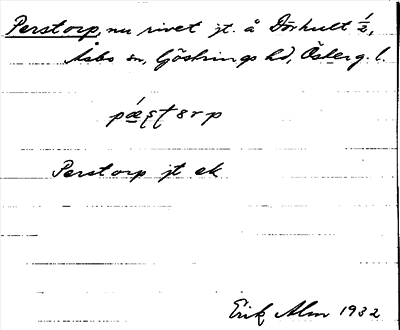 Perstorp, nu rivet jt. å Dörhult ½,
Åsbo sn, Göstrings hd, Österg. l.
Perstorp jt ek
Erik Alm 1932